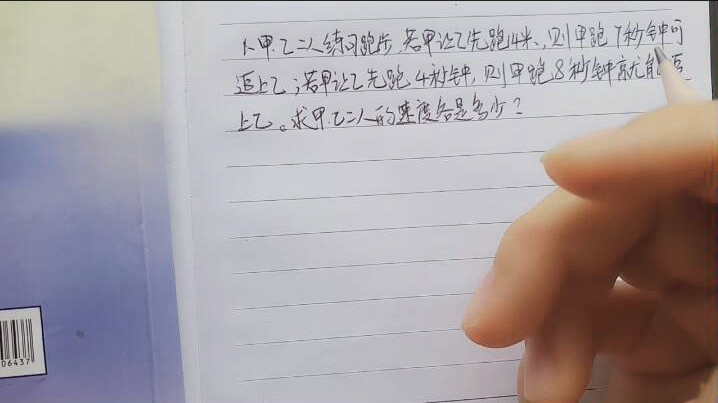 1、甲、乙二人练习跑步,若甲让乙先跑14米,则甲跑7秒钟可
追上乙;若甲让乙先跑4秒钟,则甲跑8秒钟就能追
上乙。求甲、乙二人的速度各是多少?
06437